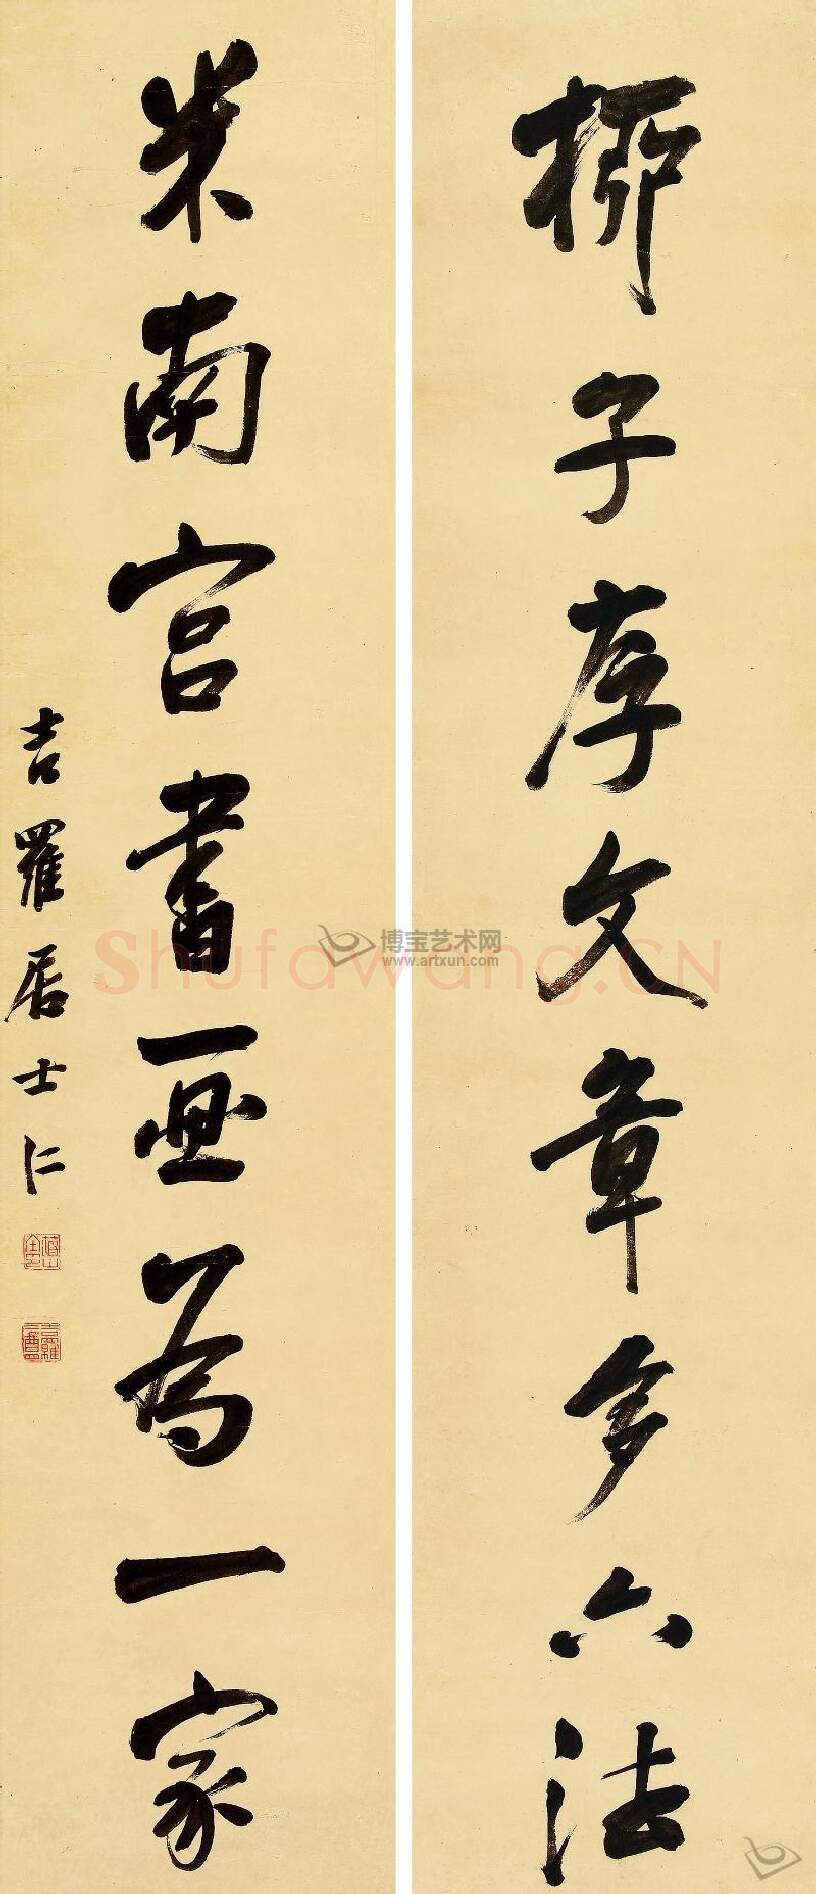 柳子厚文章多六法
米南宫書画為一家
吉羅居士仁
Shufawang.CN
博宝艺术网
www.artxun.com